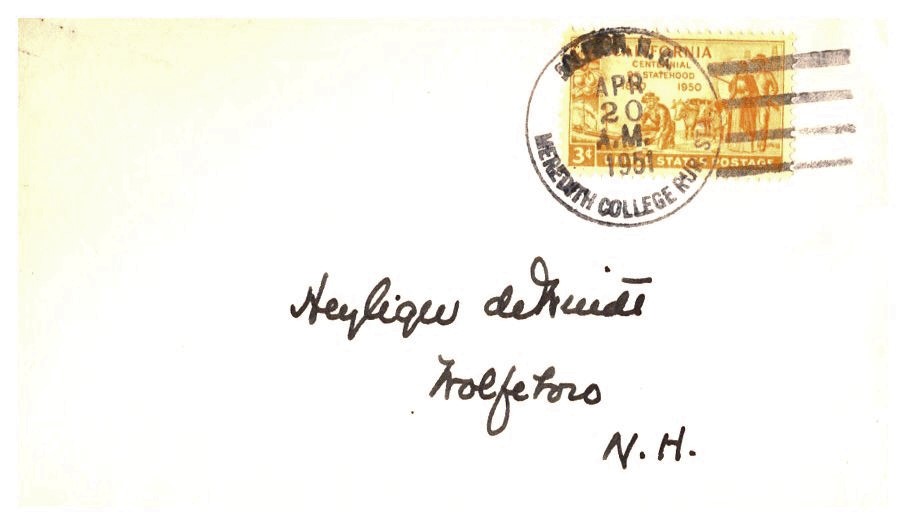 RALEIGH, N.C.
APR
20
A.M.
1951
MEREDITH COLLEGE RUR. STA.
CALIFORNIA
CENTENNIAL
OF STATEHOOD
1850 1950
3¢ UNITED STATES POSTAGE
Heyliger de Windt
Wolfeboro
N.H.